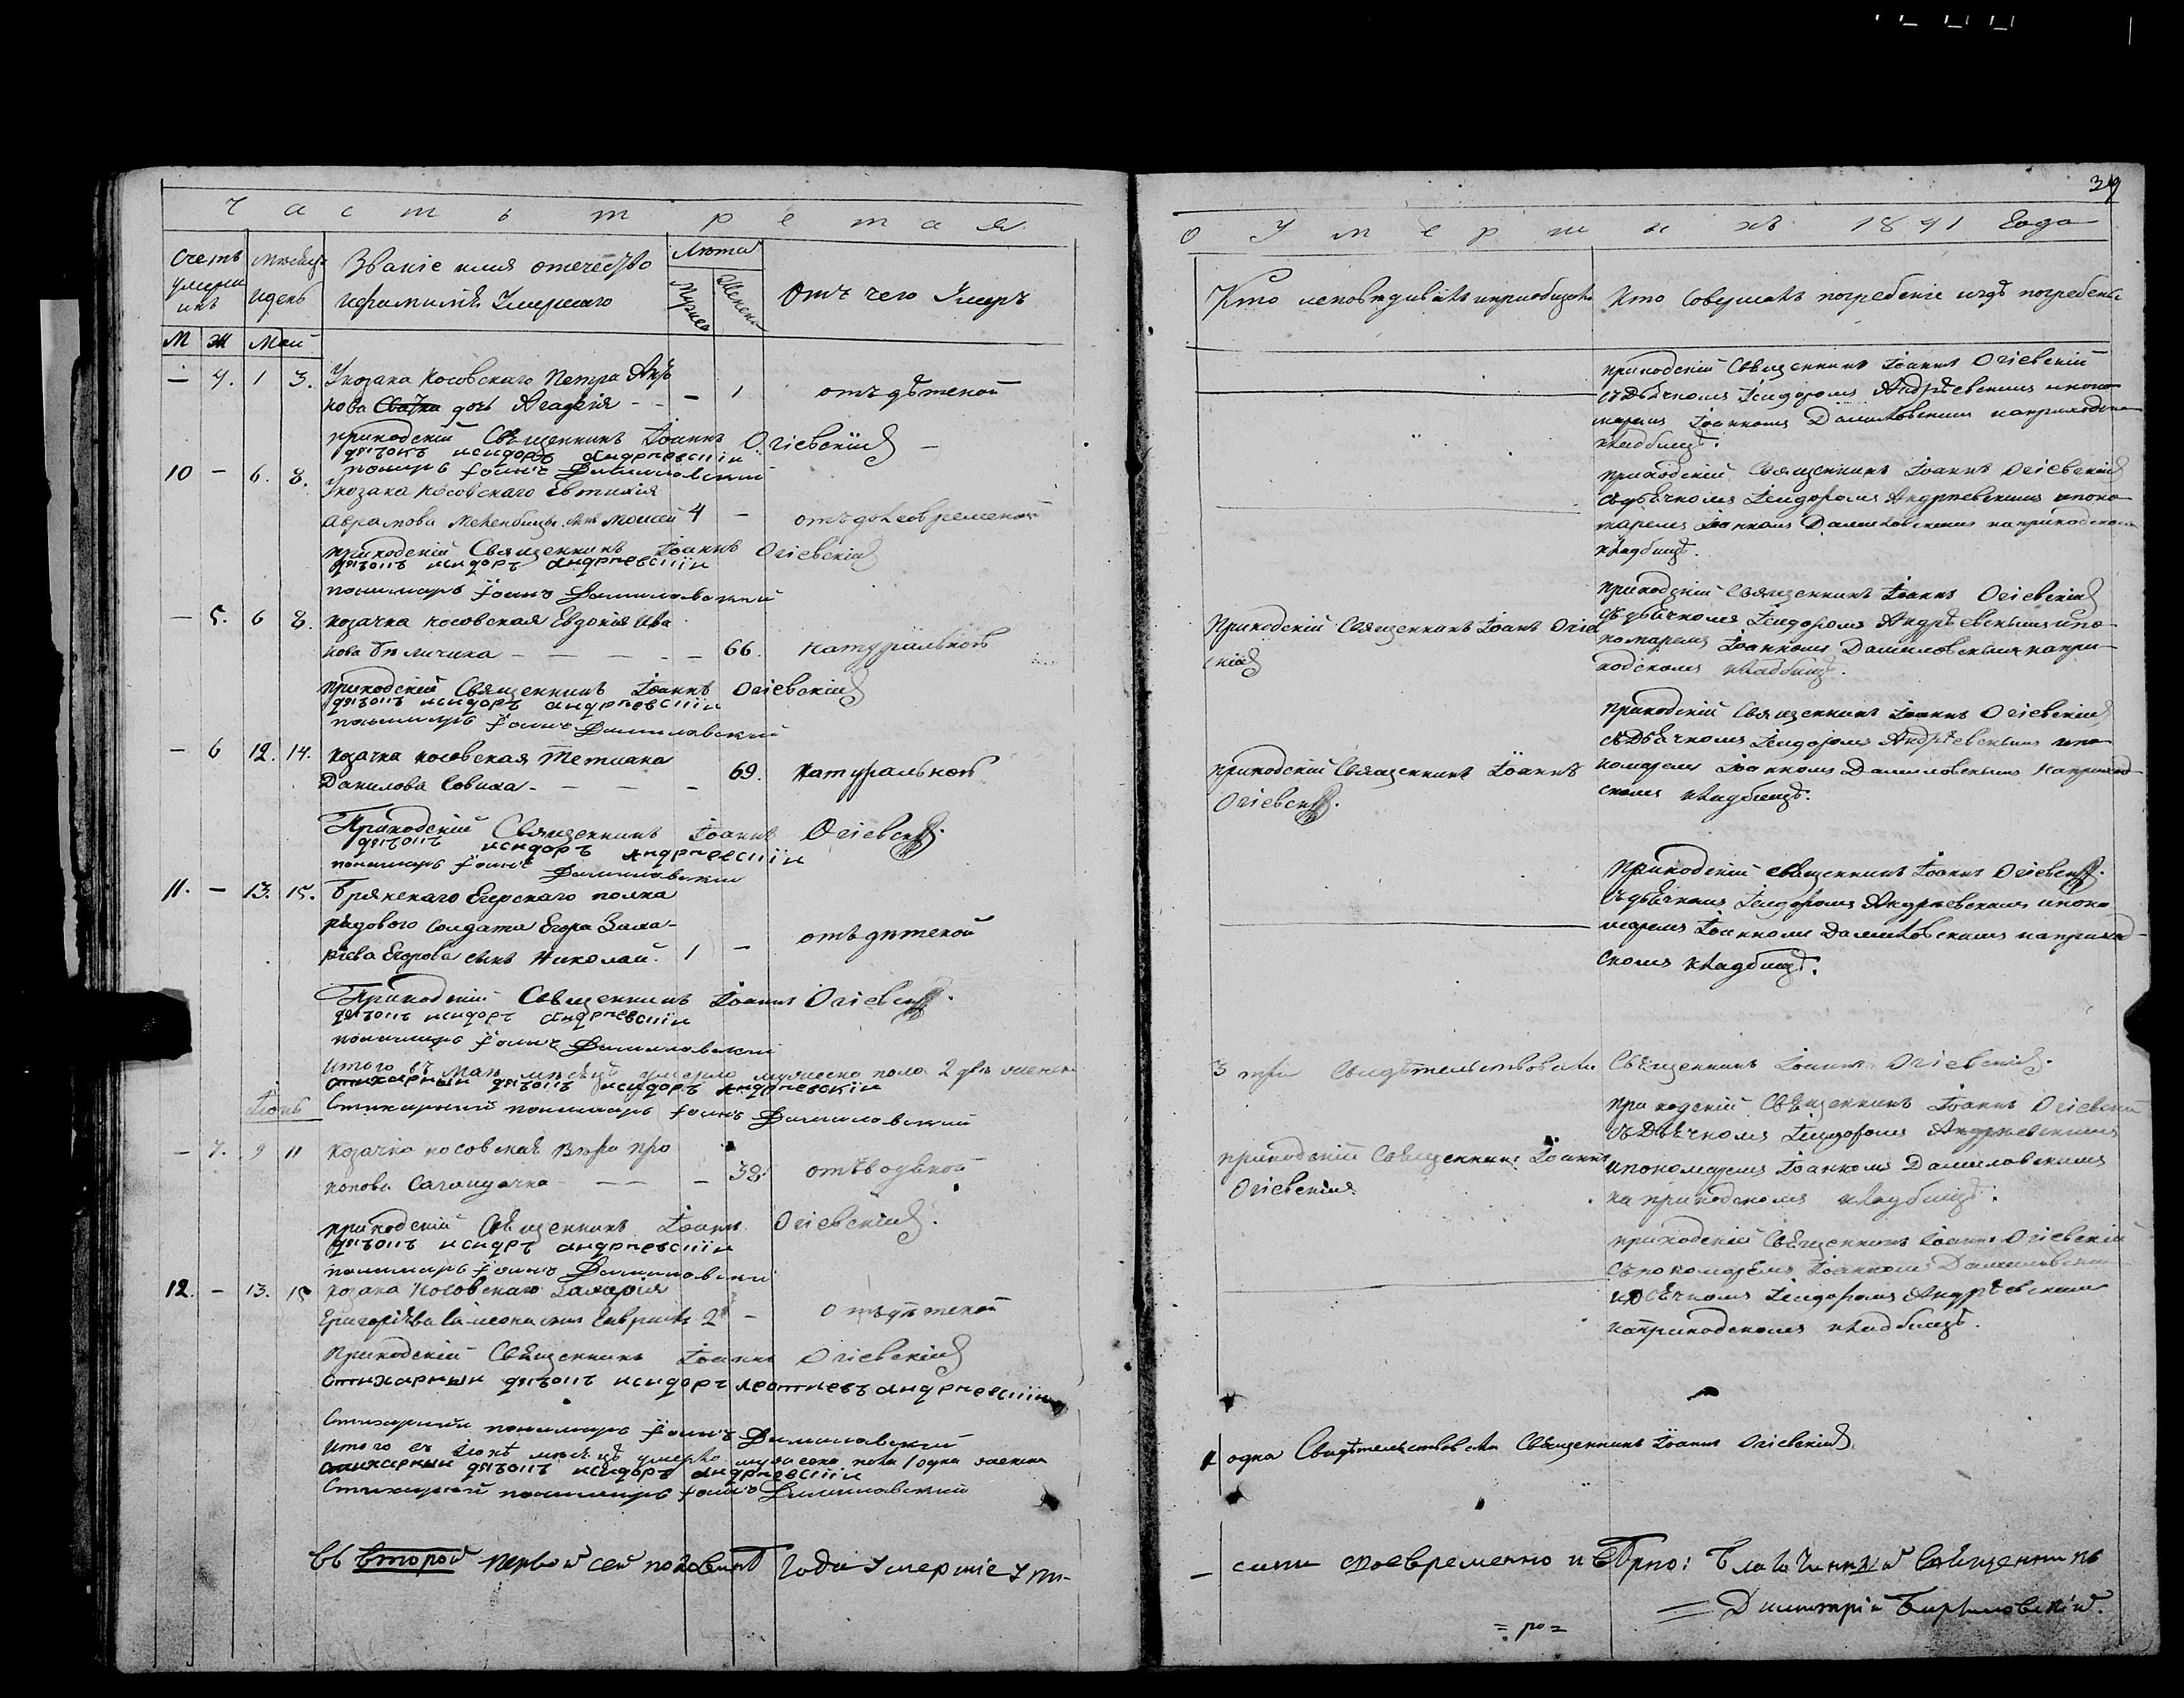 Часть третая
Счетъ умершихъ
Месяцъ и день
Званіе имя отечество и фамилія Умершаго
Лѣта
Мужеска
Женска
Отъ чего Умеръ
М Ж Май
— 4. 1 3. Укозака Носовскаго Петра
нова дочь Агафія - - — 1 отъ дѣтской
приходскій Священникъ Іоаннъ Огіевскій
дячокъ исидоръ андріевскій
пономарь Іоаннъ Даниловский
10 — 6. 8. Укозака Носовскаго Евтихія
Аврамова сынъ Моисей 4 —
приходскій Священникъ Іоаннъ Огіевскій
дячокъ исидоръ андріевскій
пономарь Іоаннъ Даниловский
— 5. 6 8. козачка носовская Евдокія Ива
нова Беличика — — — 66. натуральной
приходскій Священникъ Іоаннъ Огіевскій
дячокъ исидоръ андріевскій
пономарь Іоаннъ Даниловский
— 6 12. 14. козачка носовская Тетиана
Данилова Совиха - — — — 69. натуральной
Приходскій Священникъ Іоаннъ Огіевскій
дячокъ исидоръ андріевскій
пономарь Іоаннъ Даниловский
11. — 13. 15. Брянскаго Егерскаго полка
рядового солдата Егора Заха-
ріева Егорова сынъ Николай. 1 — отъ дѣтской
Приходскій Священникъ Іоаннъ Огіевскій
дячокъ исидоръ андріевскій
пономарь Іоаннъ Даниловский
итого въ Маѣ мѣсяцѣ умерло мужеска пола 2 два женска
стихарный дячокъ исидоръ андріевскій
Июнь Стихарный пономарь Іоаннъ Даниловский
— 7. 9 11 козачка носовская Вѣра Про
копова — — — 38. отъ водяной
приходскій Священникъ Іоаннъ Огіевскій
дячокъ исидоръ андріевскій
пономарь Іоаннъ Даниловский
12. — 13. 15 козака Носовскаго Захарія
Григоріева сынъ Гавриилъ 2 — отъ дѣтской
Приходскій Священникъ Іоаннъ Огіевскій
стихарный дячокъ исидоръ андріевскій
Стихарный пономарь Іоаннъ Даниловский
Итого въ Іюнѣ мѣсяцѣ умерло мужеска пола 1 одна женска
стихарный дячокъ исидоръ андріевскій
Стихарный пономарь Іоаннъ Даниловский
въ второй первой сей половинѣ года Умершіе Упи-
39
О Умершихъ 1841 Года
Кто исповѣдивалъ и приобщалъ
Кто Совершалъ погребеніе и гдѣ погребены
приходскій Священникъ Іоаннъ Огіевскій
съ дьячкомъ Ісидоромъ Андріевскимъ и поно
маремъ Іоанномъ Даниловскимъ на приходском
кладбищѣ.
приходскій Священникъ Іоаннъ Огіевскій
съ дьячкомъ Ісидоромъ Андріевскимъ и поно
маремъ Іоанномъ Даниловскимъ на приходском
кладбищѣ.
Приходскій Священникъ Іоанъ Огіев
скій
приходскій Священникъ Іоаннъ Огіевскій
съ дьячкомъ Ісидоромъ Андріевскимъ и по-
номаремъ Іоанномъ Даниловскимъ на при-
ходскомъ кладбищѣ.
приходскій Священникъ Іоаннъ
Огіевскій.
приходскій Священникъ Іоаннъ Огіевскій
съ дьячкомъ Ісидоромъ Андріевскимъ и по
номаремъ Іоанномъ Даниловскимъ на приход-
скомъ кладбищѣ.
Приходскій священникъ Іоаннъ Огіевскій.
съ дьячкомъ Ісидоромъ Андріевскимъ и поно
маремъ Іоанномъ Даниловскимъ на приход-
скомъ кладбищѣ.
3 три Свидѣтельствовали Священникъ Іоаннъ Огіевскій.
приходскій Священникъ Іоаннъ
Огіевскій
приходскій Священникъ Іоаннъ Огіевскій
съ дьячкомъ Ісидоромъ Андріевскимъ
и пономаремъ Іоанномъ Даниловскимъ
на приходскомъ кладбищѣ.
приходскій Священникъ Іоаннъ Огіевскій
съ пономаремъ Іоанномъ Даниловским
и дьячкомъ Ісидоромъ Андріевским
на приходскомъ кладбищѣ.
1 одна Свидѣтельствовали Священникъ Іоаннъ Огіевскій.
— саны своевременно и вѣрно: Благочинный Священникъ
Димитрій